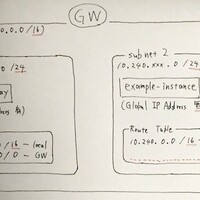 GW
0.0.0 /16)
0 /24
ay
/16 - local
/0 - GW
subnet 2
10.240.xxx.0 /24
example-instance
(Global IP Address
Route Table
10.240.0.0/16 -